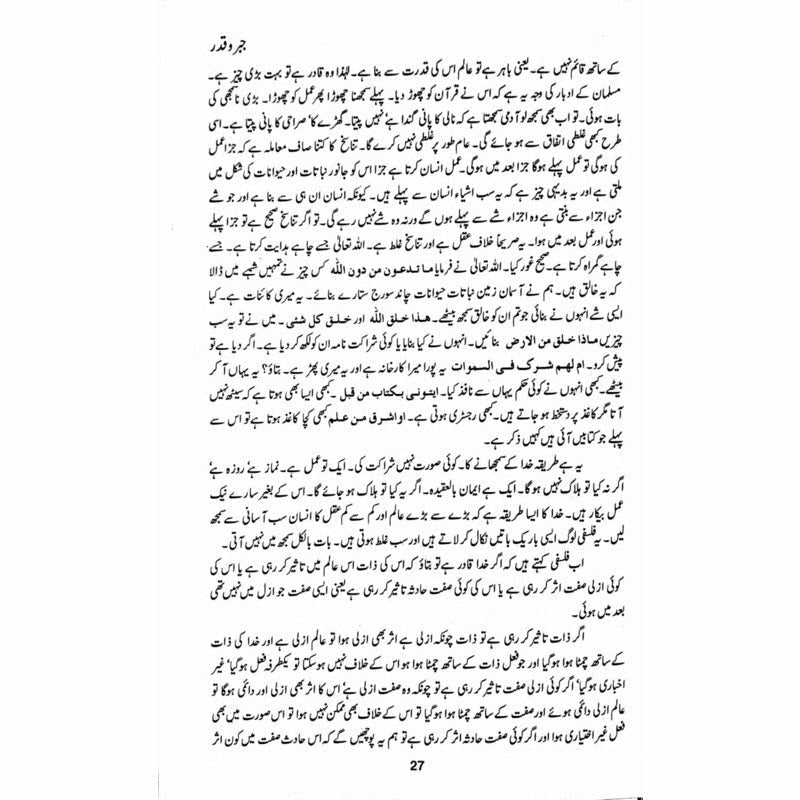 جبر و قدر
کے ساتھ قائم نہیں ہے۔ یعنی باہر ہے تو عالم اس کی قدرت سے بنا ہے۔ لہٰذا وہ قادر ہے تو بہت بڑی چیز ہے۔
مسلمان کے ادبار کی وجہ یہ ہے کہ اس نے قرآن کو چھوڑ دیا۔ پہلے سمجھنا چھوڑا پھر عمل کو چھوڑا۔ بڑی ناسمجھی کی
بات ہوئی۔ تو اب بھی سمجھ لو آدمی سمجھتا ہے کہ نالی کا پانی گندا ہے' نہیں پیتا۔ گھڑے کا' صراحی کا پانی پیتا ہے۔ اسی
طرح کبھی غلطی اتفاق سے ہو جائے گی۔ عام طور پر غلطی نہیں کرے گا۔ تناسخ کا کتنا صاف معاملہ ہے کہ جزا عمل
کی ہوگی تو عمل پہلے ہوگا جزا بعد میں ہوگی۔ عمل انسان کرتا ہے جزا اس کو جانور نباتات اور حیوانات کی شکل میں
ملتی ہے اور یہ بدیہی چیز ہے کہ یہ سب اشیاء انسان سے پہلے ہیں۔ کیونکہ انسان ان ہی سے بنا ہے اور جو شے
جن اجزاء سے بنتی ہے وہ اجزاء شے سے پہلے ہوں گے ورنہ وہ شے نہیں رہے گی۔ تو اگر تناسخ صحیح ہے تو جزا پہلے
ہوئی اور عمل بعد میں ہوا۔ یہ صریحاً خلاف عقل ہے اور تناسخ غلط ہے۔ اللہ تعالیٰ جسے چاہے ہدایت کرتا ہے۔ جسے
چاہے گمراہ کرتا ہے۔ صحیح غور کیا۔ اللہ تعالیٰ نے فرمایا ما تدعون من دون اللہ کس چیز نے تمہیں شبہے میں ڈالا
کہ یہ خالق ہیں۔ ہم نے آسمان زمین نباتات حیوانات چاند سورج ستارے بنائے۔ یہ میری کائنات ہے۔ کیا
ایسی شے انہوں نے بنائی جو تم ان کو خالق سمجھ بیٹھے۔ هذا خلق الله اور خلق کل شئی۔ میں نے تو یہ سب
چیزیں ماذا خلق من الارض بنائیں۔ انہوں نے کیا بنایا یا کوئی شراکت نامہ ان کو لکھ کر دیا ہے۔ اگر دیا ہے تو
پیش کرو۔ ام لهم شرک فی السموات یہ پورا میرا کارخانہ ہے اور یہ میری پھڑ ہے۔ بتاؤ؟ یہ یہاں آ کر
بیٹھے۔ کبھی انہوں نے کوئی حکم یہاں سے نافذ کیا۔ ایتونی بکتاب من قبل۔ کبھی ایسا بھی ہوتا ہے کہ سیٹھ نہیں
آتا مگر کاغذ پر دستخط ہو جاتے ہیں۔ کبھی رجسٹری ہوتی ہے۔ او اشرق من علم کبھی کچا کاغذ ہوتا ہے تو اس سے
پہلے جو کتابیں آئی ہیں کہیں ذکر ہے۔
یہ ہے طریقہ خدا کے سمجھانے کا۔ کوئی صورت نہیں شراکت کی۔ ایک تو عمل ہے۔ نماز ہے' روزہ ہے'
اگر نہ کیا تو ہلاک نہیں ہوگا۔ ایک ہے ایمان بالعقیدہ۔ اگر یہ کیا تو ہلاک ہو جائے گا۔ اس کے بغیر سارے نیک
عمل بیکار ہیں۔ خدا کا ایسا طریقہ ہے کہ بڑے سے بڑے عالم اور کم سے کم عقل کا انسان سب آسانی سے سمجھ
لیں۔ یہ فلسفی لوگ ایسی باریک باتیں نکال کر لاتے ہیں اور سب غلط ہوتی ہیں۔ بات بالکل سمجھ میں نہیں آتی۔
اب فلسفی کہتے ہیں کہ اگر خدا قادر ہے تو بتاؤ کہ اس کی ذات اس عالم میں تاثیر کر رہی ہے یا اس کی
کوئی ازلی صفت اثر کر رہی ہے یا اس کی کوئی صفت حادثہ تاثیر کر رہی ہے یعنی ایسی صفت جو ازل میں نہیں تھی
بعد میں ہوئی۔
اگر ذات تاثیر کر رہی ہے تو ذات چونکہ ازلی ہے اثر بھی ازلی ہوا تو عالم ازلی ہے اور خدا کی ذات
کے ساتھ چمٹا ہوا ہوگیا اور جو فعل ذات کے ساتھ چمٹا ہوا ہو اس کے خلاف نہیں ہوسکتا تو یکطرفہ فعل ہوگیا' غیر
اخباری ہوگیا' اگر کوئی ازلی صفت تاثیر کر رہی ہے تو چونکہ وہ صفت ازلی ہے' اس کا اثر بھی ازلی اور دائمی ہوگا تو
عالم ازلی دائمی ہوئے اور صفت کے ساتھ چمٹا ہوا ہوگیا تو اس کے خلاف بھی ممکن نہیں ہوا تو اس صورت میں بھی
فعل غیر اختیاری ہوا اور اگر کوئی صفت حادثہ اثر کر رہی ہے تو ہم یہ پوچھیں گے کہ اس حادث صفت میں کون اثر
27